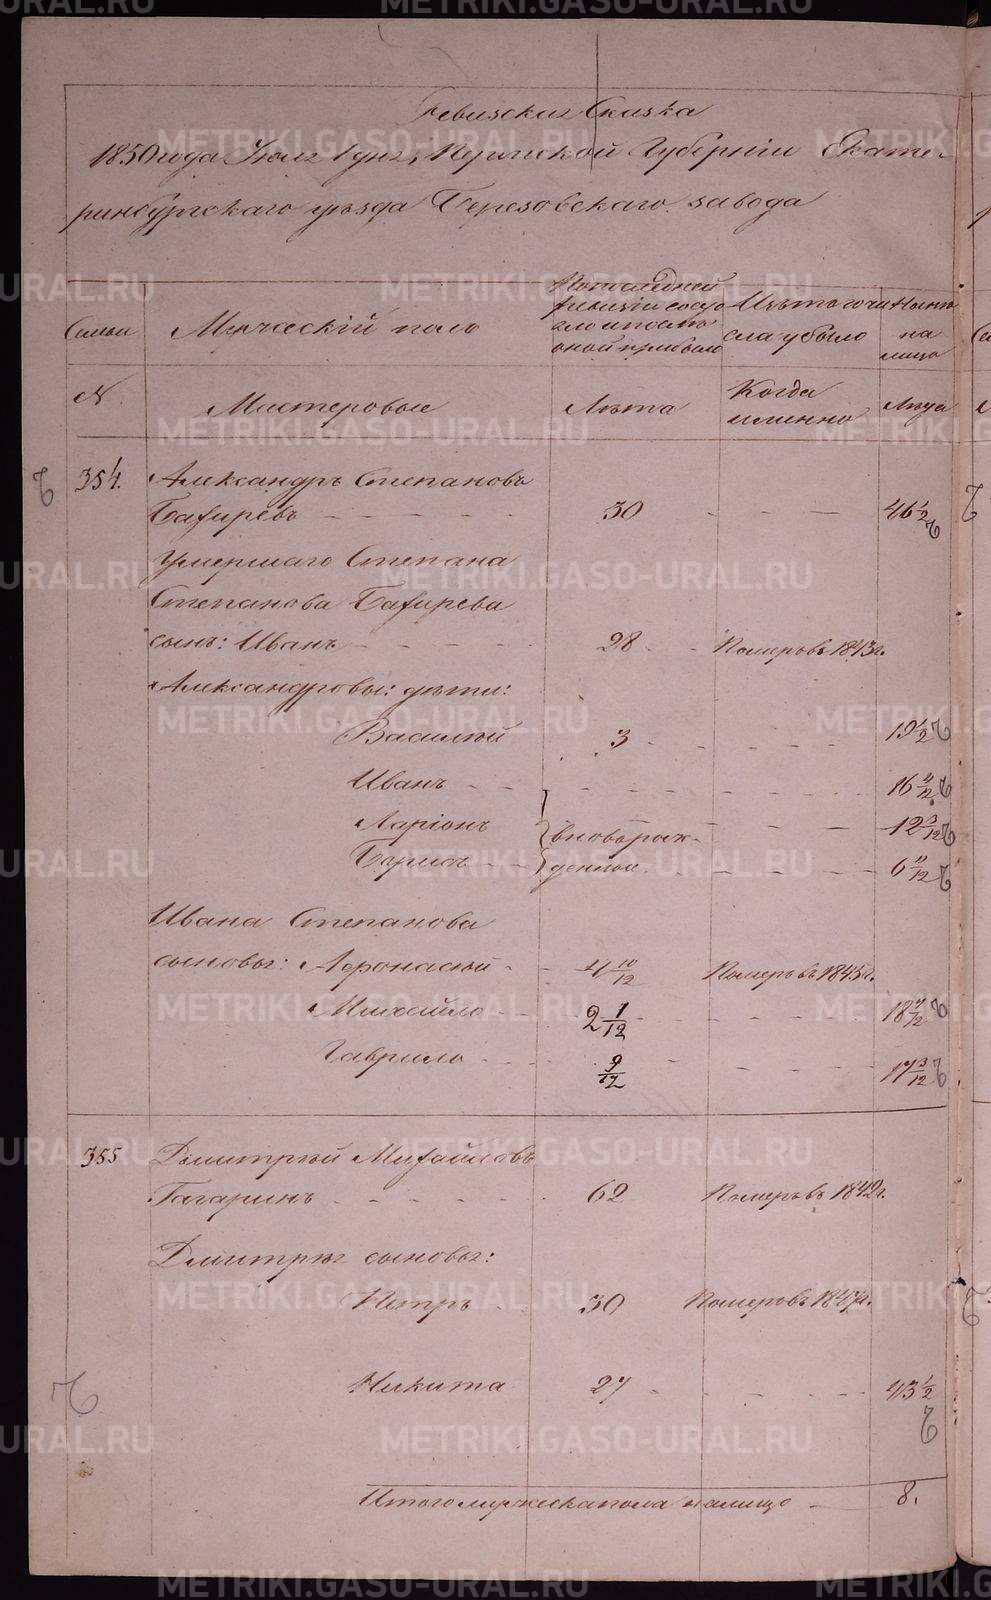 Ревизская Сказка
1850 года Июля 1 дня, Пермской Губернiи Екате-
ринбургскаго уѣзда Березовскаго завода
Семьи
Мужескiй полъ
По последней
ревизiи состо
яло и послѣ
оной прибыло
Изъ того чи
сла убыло
Нынѣ
на
лицо
N
Мастеровые
Лѣта
Когда
именно
Лѣта
354. Александръ Степановъ
Бахиревъ 30 46 1/2
Умершаго Степана
Степанова Бахирева
сынъ: Иванъ 28 Померъ въ 1843 г.
Александровы: дѣти:
Василий 3 19 1/2
Иванъ 16 4/12
Ларiонъ вновьрож- 12 3/12
Борисъ денной 6 11/12
Ивана Степанова
сыновья: Афонасий 4 10/12 Померъ въ 1845 г.
Михайло 2 1/12 18 7/12
Гаврило 9/12 17 3/12
355 Дмитрий Михайловъ
Гагаринъ 62 Померъ въ 1842 г.
Дмитрiя сыновья:
Петръ 30 Померъ въ 1847 г.
Никита 27 43 1/2
Итого мужеска пола на лицо 8.
METRIKI.GASO-URAL.RU